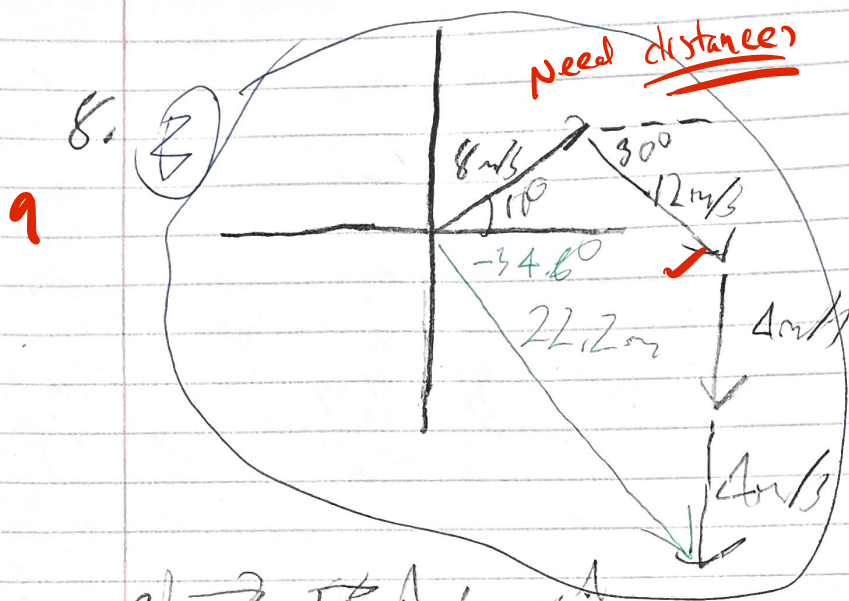 Need distances
8.
9
8 m/s
30°
12 m/s
-34.6°
22.2m
4m/s
4m/s